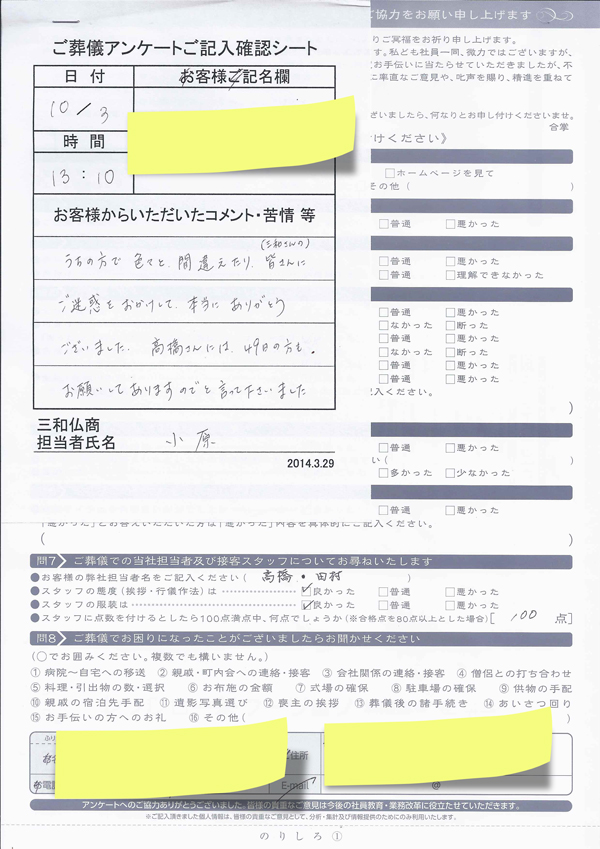 ご協力をお願い申し上げます
ご葬儀アンケートご記入確認シート
りご冥福をお祈り申し上げます。
す。私ども社員一同、微力ではございますが、
お手伝いに当たらせていただきましたが、不
に率直なご意見や、叱声を賜り、精進を重ねて
ざいましたら、何なりとお申し付けくださいませ。
合掌
付けください》
日付 お客様ご記名欄
10/3
時間
13:10
□ホームページを見て
その他( )
□普通 □悪かった
□普通 □悪かった
□普通 □理解できなかった
□普通 □悪かった
□なかった □断った
□普通 □悪かった
□なかった □断った
□普通 □悪かった
□普通 □悪かった
記入ください。
)
お客様からいただいたコメント・苦情 等
(三和さんの)
うちの方で色々と、間違えたり、皆さんに
ご迷惑をおかけして、本当にありがとう
ございました。高橋さんには、49日の方も、
お願いしてありますのでと言って下さいました
三和仏商
担当者氏名 小原
2014.3.29
□普通 □悪かった
い( )
□多かった □少なかった
□普通 □悪かった
「悪かった」とお答えいただいた方は「悪かった」内容を具体的にご記入ください。
( )
問7 ご葬儀での当社担当者及び接客スタッフについてお尋ねいたします
●お客様の弊社担当者名をご記入ください( 高橋・田村 )
●スタッフの態度(挨拶・行儀作法)は ☑良かった □普通 □悪かった
●スタッフの服装は ☑良かった □普通 □悪かった
●スタッフに点数を付けるとしたら100点満点中、何点でしょうか(※合格点を80点以上とした場合)[ 100 点]
問8 ご葬儀でお困りになったことがございましたらお聞かせください
(○でお囲みください。複数でも構いません。)
①病院〜自宅への移送 ②親戚・町内会への連絡・接客 ③会社関係の連絡・接客 ④僧侶との打ち合わせ
⑤料理・引出物の数・選択 ⑥お布施の金額 ⑦式場の確保 ⑧駐車場の確保 ⑨供物の手配
⑩親戚の宿泊先手配 ⑪遺影写真選び ⑫喪主の挨拶 ⑬葬儀後の諸手続き ⑭あいさつ回り
⑮お手伝いの方へのお礼 ⑯その他( )
住所
お電話 E-mail @
アンケートへのご協力ありがとうございました。皆様の貴重なご意見は今後の社員教育・業務改革に役立たせていただきます。
※ご記入頂きました個人情報は、皆様の貴重なご意見として、分析・集計及び情報提供のためにのみ利用いたします。
のりしろ①